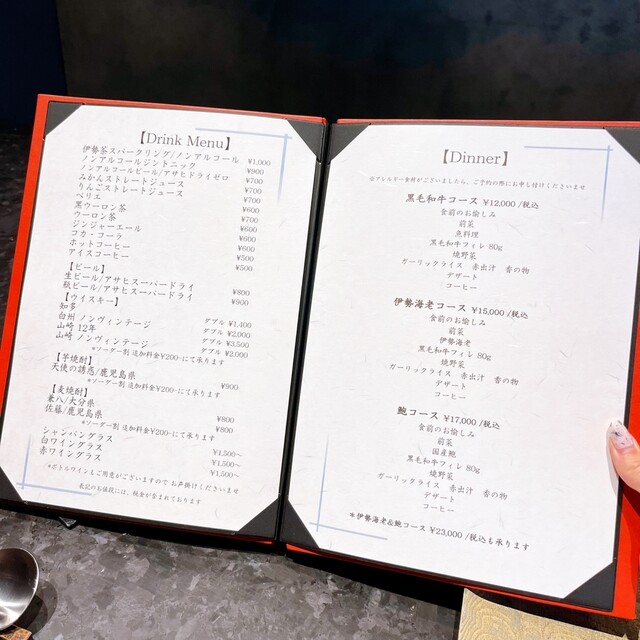 【Drink Menu】
伊勢茶スパークリング/ノンアルコール ¥1,000
ノンアルコールジントニック ¥900
ノンアルコールビール/アサヒドライゼロ ¥700
みかんストレートジュース ¥700
りんごストレートジュース ¥700
ペリエ ¥700
黒ウーロン茶 ¥600
ウーロン茶 ¥600
ジンジャーエール ¥600
コカ・コーラ ¥600
ホットコーヒー ¥500
アイスコーヒー ¥500
【ビール】
生ビール/アサヒスーパードライ ¥800
瓶ビール/アサヒスーパードライ ¥900
【ウイスキー】
知多 ダブル ¥1,400
白州 ノンヴィンテージ ダブル ¥2,000
山崎 12年 ダブル ¥3,500
山崎 ノンヴィンテージ ダブル ¥2,000
*ソーダー割 追加料金¥200-にて承ります
【芋焼酎】
天使の誘惑/鹿児島県 ¥900
*ソーダー割 追加料金¥200-にて承ります
【麦焼酎】
兼八/大分県 ¥800
佐藤/鹿児島県 ¥800
*ソーダー割 追加料金¥200-にて承ります
シャンパングラス ¥1,500~
白ワイングラス ¥1,500~
赤ワイングラス ¥1,500~
*ボトルワインもご用意がございますのでお声掛けくださいませ
表記のお値段には、税金が含まれております
【Dinner】
※アレルギー食材がございましたら、ご予約の際にお申し付けくださいませ
黒毛和牛コース ¥12,000/税込
食前のお愉しみ
前菜
魚料理
黒毛和牛フィレ 80g
焼野菜
ガーリックライス 赤出汁 香の物
デザート
コーヒー
伊勢海老コース ¥15,000/税込
食前のお愉しみ
前菜
伊勢海老
黒毛和牛フィレ 80g
焼野菜
ガーリックライス 赤出汁 香の物
デザート
コーヒー
鮑コース ¥17,000/税込
食前のお愉しみ
前菜
国産鮑
黒毛和牛フィレ 80g
焼野菜
ガーリックライス 赤出汁 香の物
デザート
コーヒー
*伊勢海老&鮑コース ¥23,000/税込も承ります